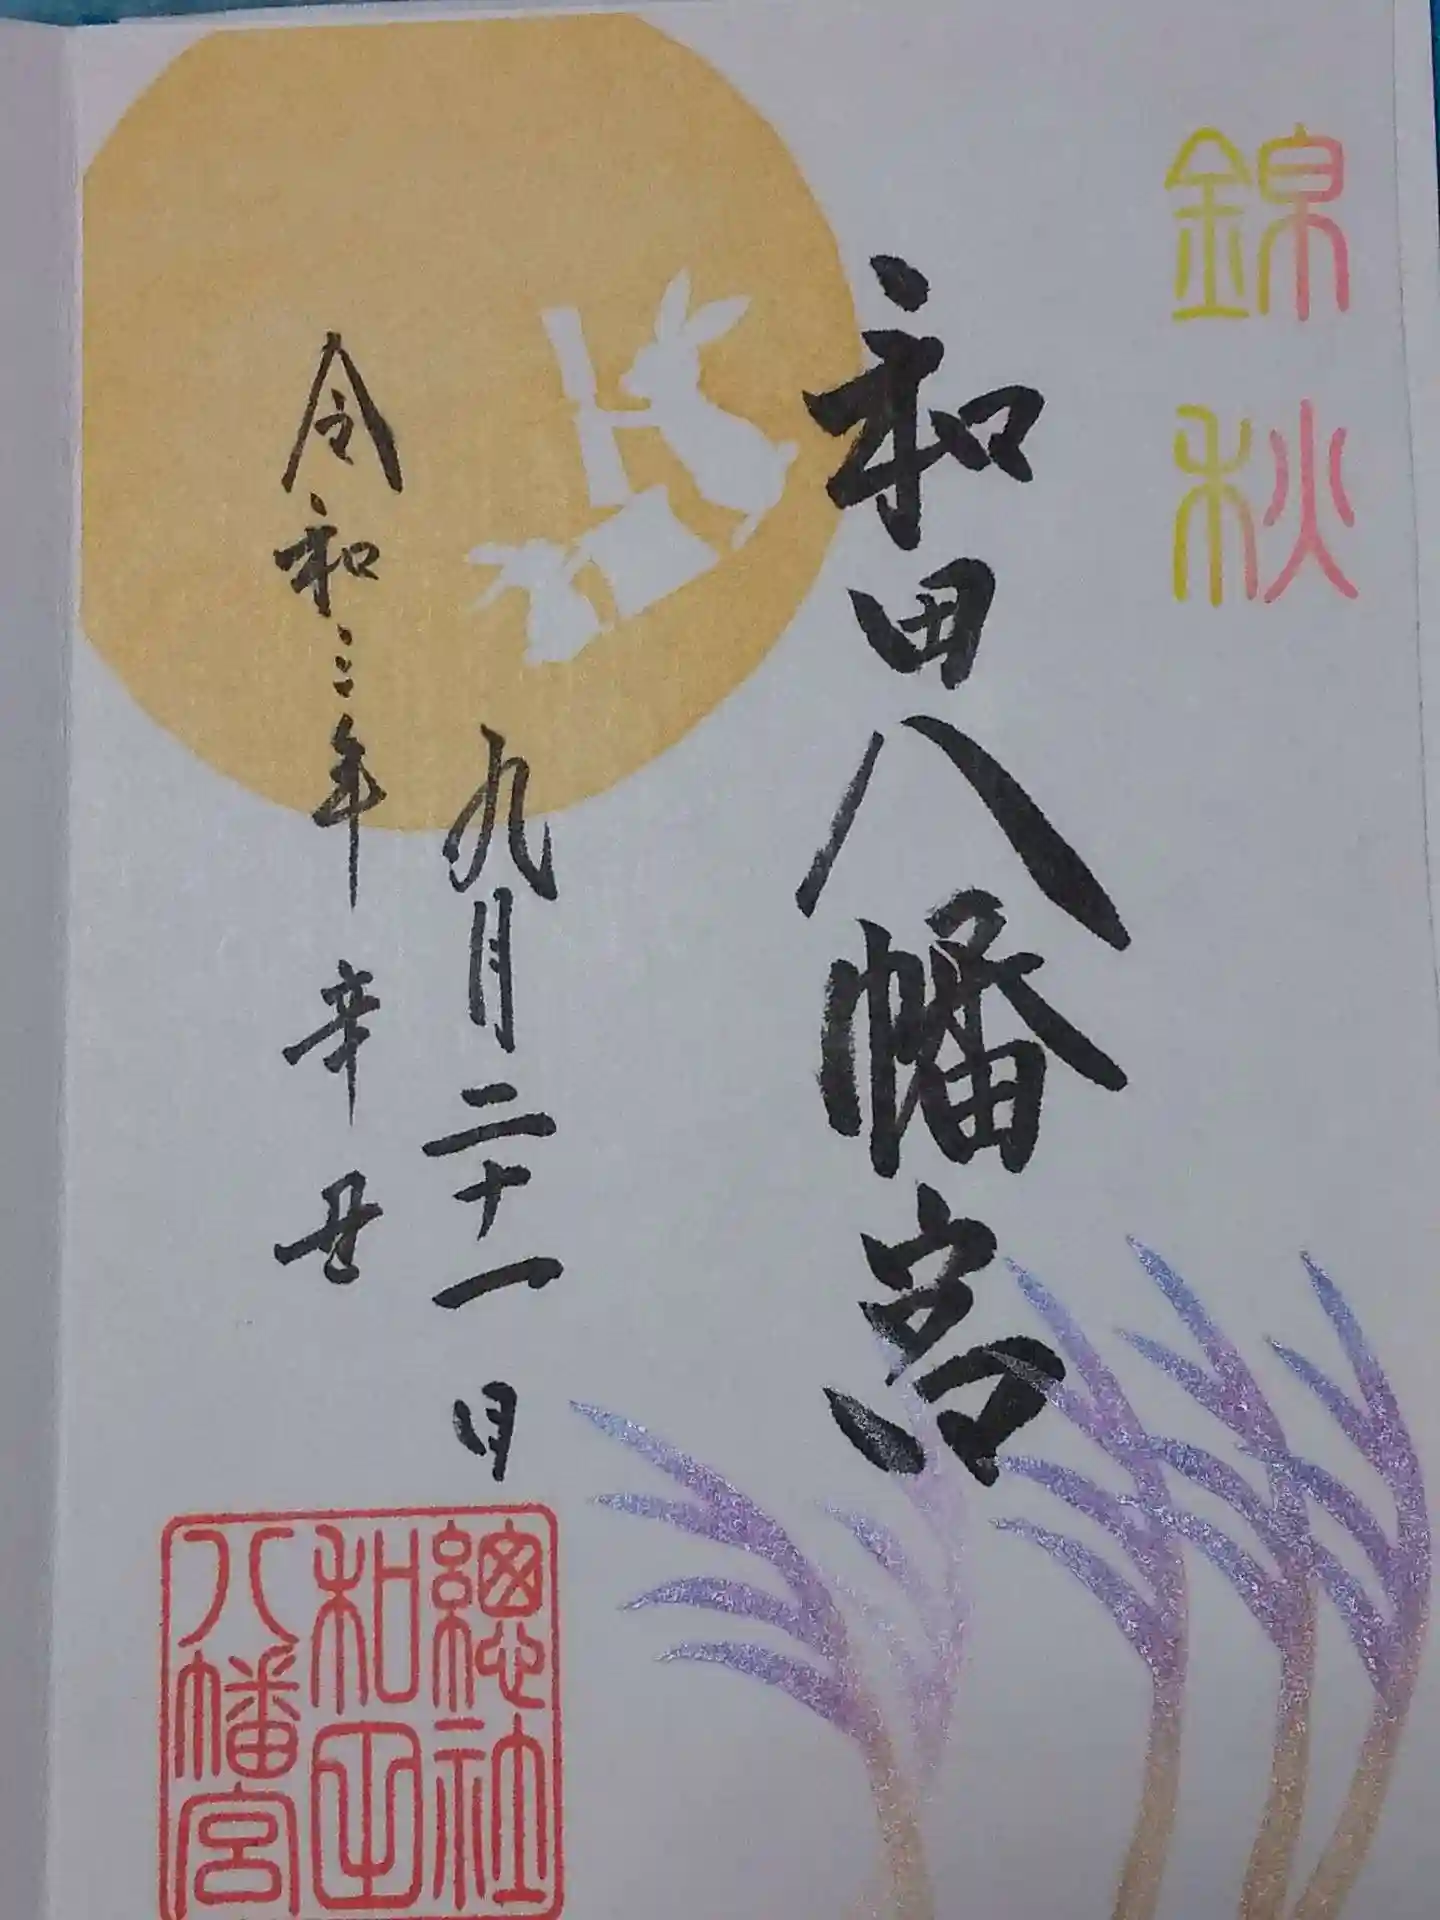 錦秋
和田八幡宮
九月二十一日
令和三年辛丑
總社
和田
八幡宮